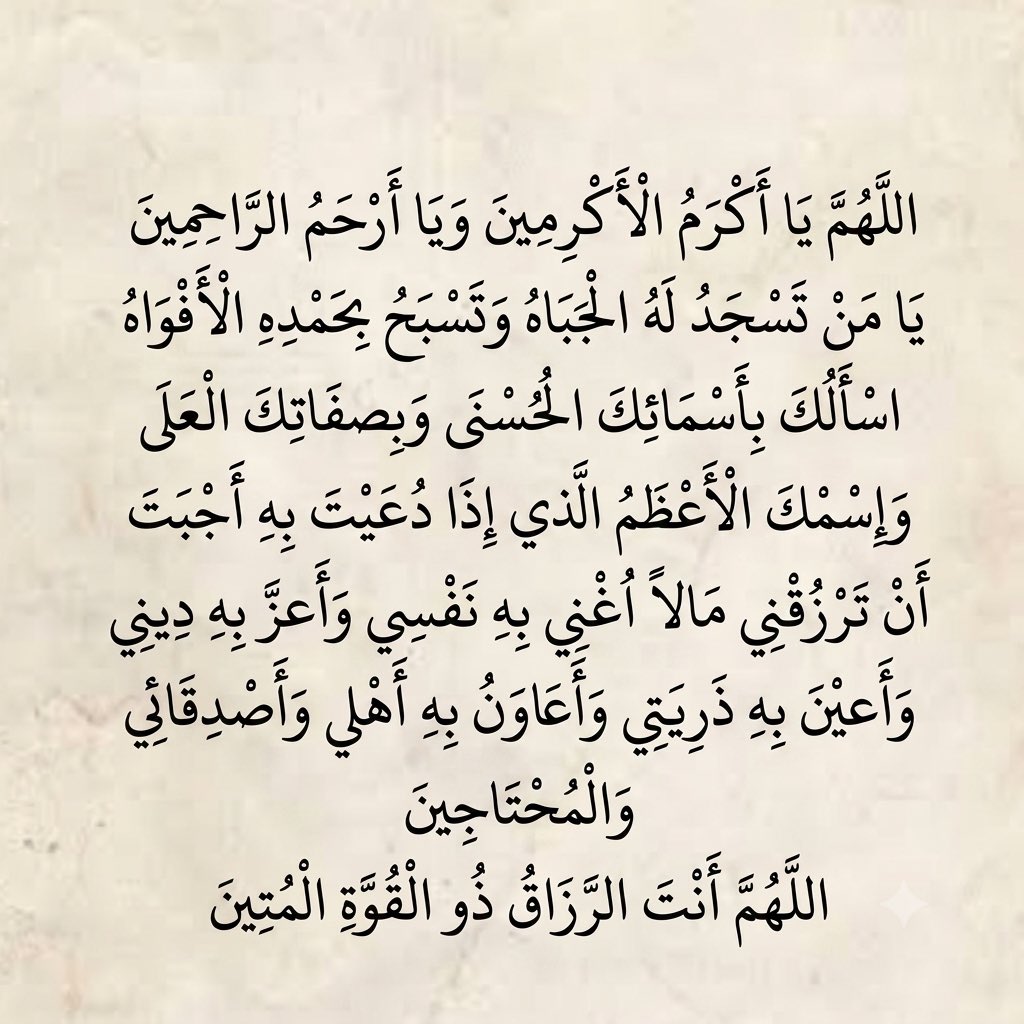 اللَّهُمَّ يَا أَكْرَمُ الْأَكْرِمِينَ وَيَا أَرْحَمُ الرَّاحِمِينَ
يَا مَنْ تَسْجَدُ لَهُ الْجَبَاهُ وَتَسْبَحُ بِحَمْدِهِ الْأَفْوَاهُ
اسْأَلُكَ بِأَسْمَائِكَ الْحُسْنَى وَبِصفَاتِكَ الْعَلَى
وَإِسْمْكَ الْأَعْظَمُ الَّذي إِذَا دُعَيْتَ بِهِ أَجْبَتَ
أَنْ تَرْزُقْنِي مَالاً اُغْنِي بِهِ نَفْسِي وَأَعزَّ بِهِ دِينِي
وَأَعيْنَ بِهِ ذَرِيَتِي وَأَعَاوَنُ بِهِ أَهْلي وَأَصْدِقَائِي
وَالْمُحْتَاجِينَ
اللَّهُمَّ أَنْتَ الرَّزَاقُ ذُو الْقُوَّةِ الْمُتِينَ